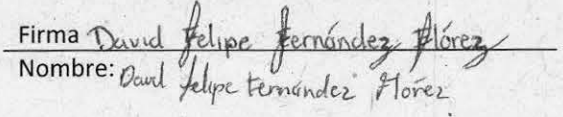 Firma David Felipe Fernández Flórez
Nombre: David Felipe Fernández Flórez